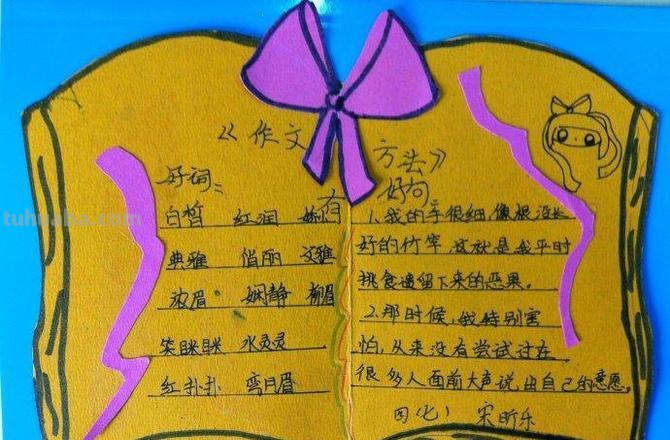 《作文有方法》
好词：
白皙 红润
典雅 俏丽 文雅
浓眉 娴静 柳眉
笑眯眯 水灵灵
红扑扑 弯月眉
好句
1.我的手很细,像根没长
好的竹竿,这就是我平时
挑食遗留下来的恶果。
2.那时候,我特别害
怕,从来没有尝试过在
很多人面前大声说出自己的意愿。
四(七) 宋昕乐
tuhuaba.com